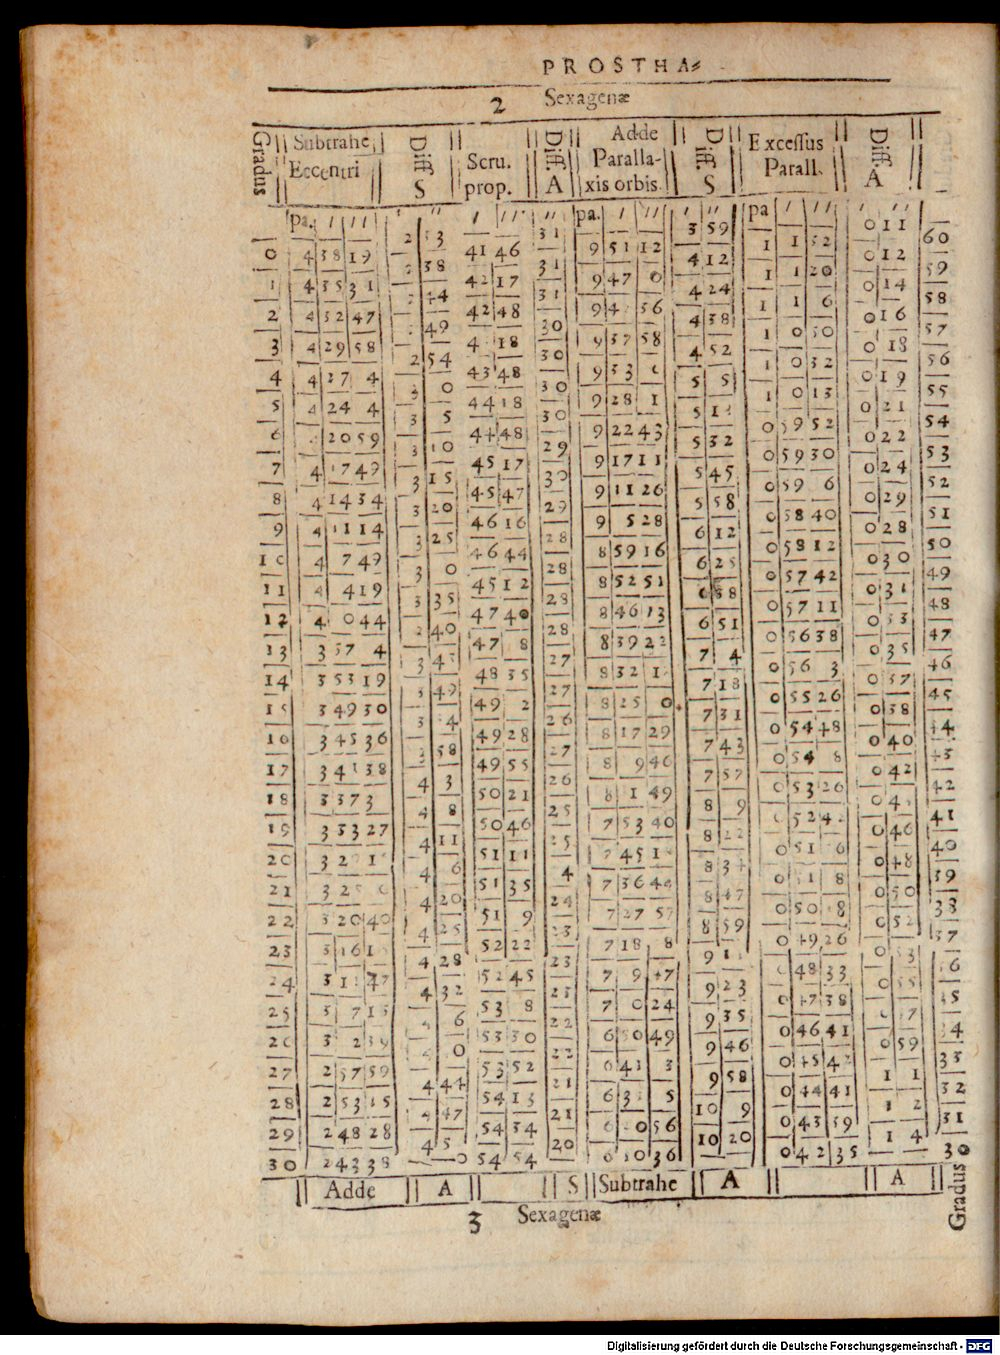 PROSTHA⸗
2 Sexagenæ
Gradus | Subtrahe Eccentri | Diff. S | Scru. prop. | Diff. A | Adde Paralla- xis orbis. | Diff. S | Excessus Parall. | Diff. A
pa. ′ ″ | ′ ″ | ′ ″ | ″ | pa. ′ ″ | ′ ″ | pa ′ ″ | ′ ″
0 | 4 38 19 | 41 46 | 31 | 9 51 12 | 3 59 | 1 1 52 | 0 11 | 60
1 | 4 35 31 | 42 17 | 31 | 9 47 0 | 4 12 | 1 1 20 | 0 12 | 59
2 | 4 32 47 | 42 48 | 31 | 56 | 4 24 | 1 1 6 | 0 14 | 58
3 | 4 29 58 | 18 | 30 | 9 37 58 | 4 38 | 1 0 50 | 0 16 | 57
4 | 4 27 4 | 2 54 | 43 48 | 30 | 9 33 | 4 52 | 1 0 32 | 0 18 | 56
5 | 4 24 4 | 44 18 | 30 | 9 28 1 | 5 5 | 1 0 13 | 0 19 | 55
6 | 20 59 | 3 5 | 44 48 | 30 | 9 22 43 | 0 59 52 | 0 21 | 54
7 | 4 17 49 | 3 10 | 45 17 | 29 | 9 17 11 | 5 32 | 0 59 30 | 0 22 | 53
8 | 4 14 34 | 3 15 | 45 47 | 30 | 9 11 26 | 5 45 | 0 59 6 | 0 24 | 52
9 | 4 11 14 | 3 20 | 46 16 | 29 | 9 5 28 | 5 58 | 0 58 40 | 0 29 | 51
10 | 4 7 49 | 3 25 | 46 44 | 28 | 8 59 16 | 6 12 | 0 58 12 | 0 28 | 50
11 | 4 4 19 | 45 12 | 28 | 8 52 51 | 6 25 | 0 57 42 | 0 30 | 49
12 | 4 0 44 | 3 35 | 47 40 | 28 | 8 46 13 | 0 57 11 | 0 31 | 48
13 | 3 57 4 | 40 | 47 8 | 28 | 8 39 22 | 6 51 | 0 56 38 | 0 33 | 47
14 | 3 53 19 | 48 35 | 27 | 8 32 | 7 4 | 0 56 3 | 0 35 | 46
15 | 3 49 30 | 49 | 49 2 | 27 | 8 25 0 | 7 18 | 0 55 26 | 0 37 | 45
16 | 3 45 36 | 49 28 | 26 | 8 17 29 | 7 31 | 0 54 48 | 0 38 | 44
17 | 3 41 38 | 58 | 49 55 | 27 | 8 9 46 | 7 43 | 0 54 8 | 0 40 | 43
18 | 3 37 3 | 4 3 | 50 21 | 26 | 8 1 49 | 7 57 | 0 53 26 | 0 42 | 42
19 | 3 33 27 | 4 8 | 50 46 | 25 | 7 53 40 | 8 9 | 52 4 | 41
20 | 3 2 | 4 11 | 51 11 | 25 | 7 45 | 8 22 | 0 51 | 0 46 | 40
21 | 3 25 0 | 4 | 51 35 | 4 | 7 36 44 | 8 34 | 0 51 8 | 0 48 | 39
22 | 3 20 40 | 4 20 | 51 9 | 24 | 7 27 57 | 8 47 | 0 50 8 | 0 50 | 38
23 | 3 16 | 4 25 | 52 22 | 7 18 8 | 8 59 | 0 49 26 | 0 52 | 37
24 | 3 11 47 | 4 28 | 52 45 | 23 | 7 9 47 | 9 | 48 33
25 | 3 7 15 | 4 32 | 53 8 | 23 | 7 0 24 | 9 23 | 0 47 38
26 | 3 2 39 | 53 30 | 22 | 6 50 49 | 9 35 | 0 46 41
27 | 2 57 59 | 53 52 | 22 | 6 41 3 | 9 46 | 0 45 42 | 0 59 | 33
28 | 2 53 15 | 4 44 | 54 13 | 21 | 6 5 | 9 58 | 0 44 41 | 1 1 | 32
29 | 2 48 28 | 47 | 54 34 | 21 | 56 | 10 9 | 0 43 39 | 1 2 | 31
30 | 2 43 38 | 54 54 | 20 | 36 | 10 20 | 0 42 35 | 1 4 | 30
Adde | A | S | Subtrahe | A | A | Gradus
3 Sexagenæ
Digitalisierung gefördert durch die Deutsche Forschungsgemeinschaft - DFG